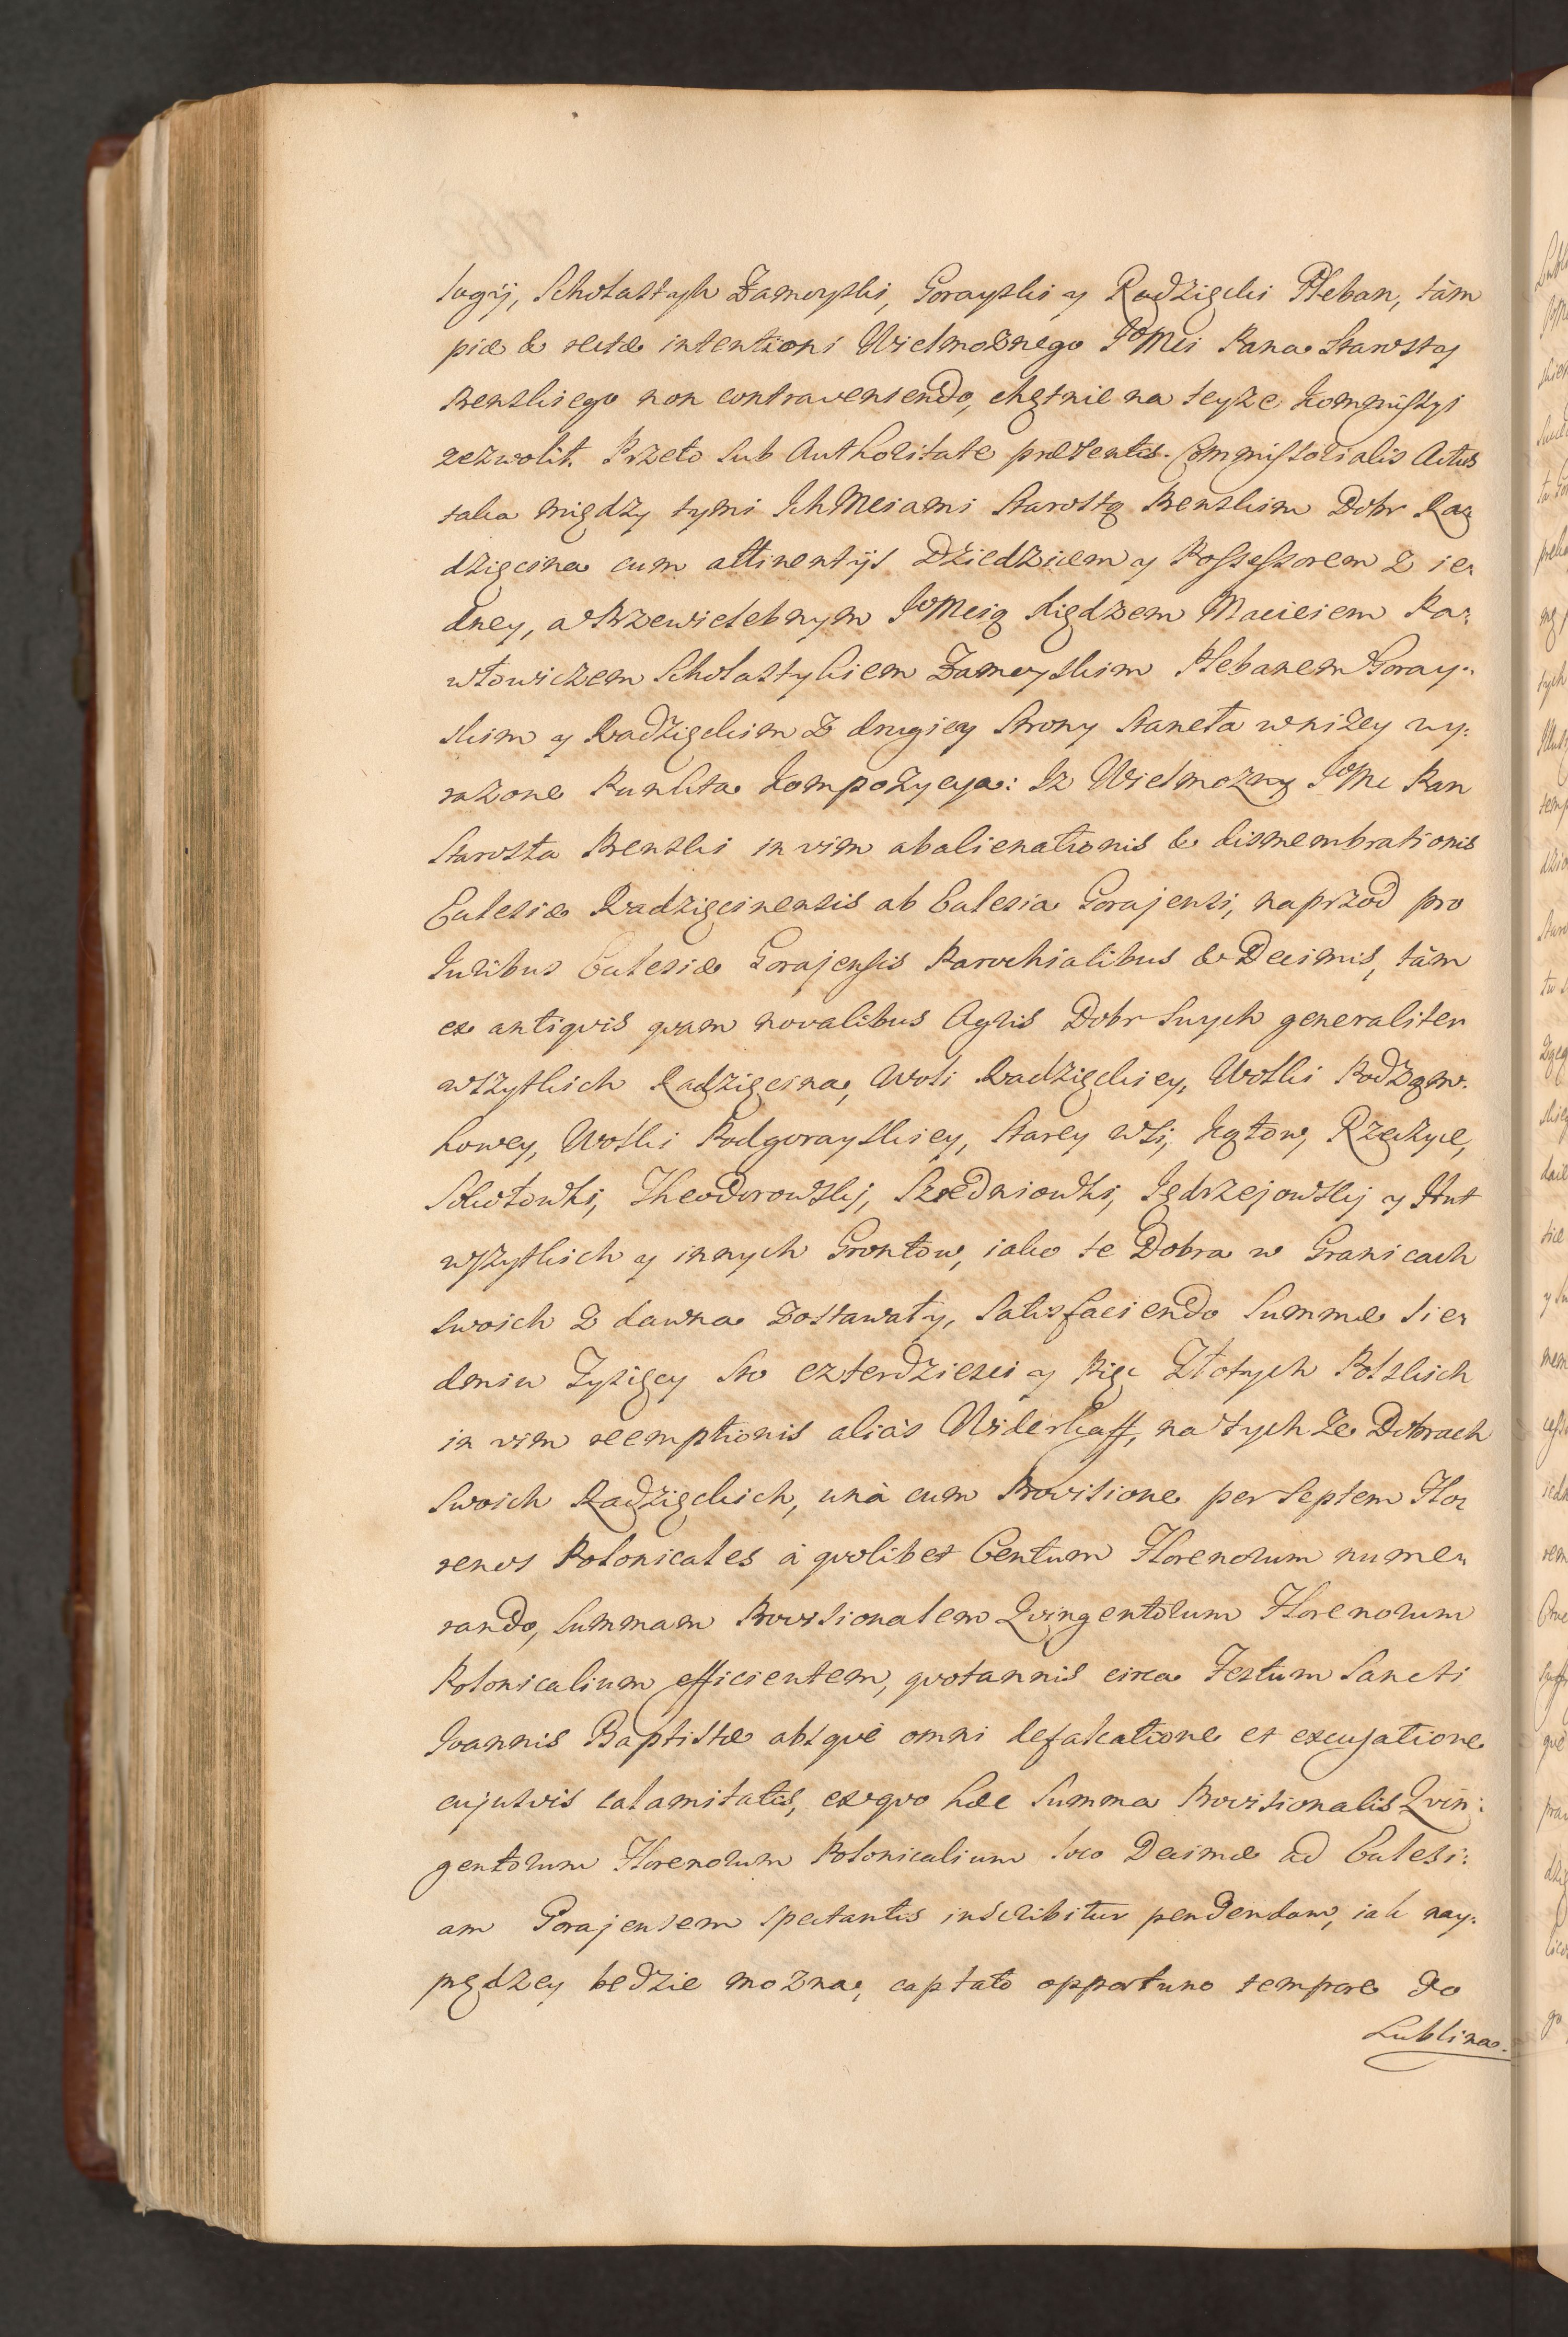 logij, Scholastyk Zamoyski, Gorayski y Radzięcki Pleban, tàm
piæ & rectæ intentioni Wielmożnego JoMci Pana Starosty
Benskiego non contraveniendo, chętnie na teyże Kommissyi
zezwolił. Przeto sub Authoritate præsentis Commissorialis Actus
taka między tymi Ich Mciami Starostą Benskim Dobr Ra=
dzięcina cum attinentijs Dziedzicem y Possessorem z ie=
dney, a Przewielebnym JoMcią Xiędzem Maciejem Pa=
włowiczem Scholastykiem Zamoyskim Plebanem Goray=
skim y Radzięckim z drugiey Strony staneła w niżey wy=
rażone Punkta Kompozycya: Iż Wielmożny JoMc Pan
Starosta Benski in vim abalienationis & dismembrationis
Ecclesiæ Radzięcinensis ab Ecclesia Gorajensi, naprzod pro
Juribus Ecclesiæ Gorajensis Parochialibus & Decimis, tàm
ex antiqvis qvam novalibus Agris Dobr Swych generaliter
wszytkich Radzięcina, Woli Radzięckiey, Wolki Podzam=
kowey, Wolki Podgorayskiey, Starey wsi, Kątow, Rzeczyce,
Sokołowki, Theodorowskij, Średniowki, Jędrzejowskij y Hut
wszytkich y innych Grontow, iako te Dobra w Granicach
swoich z dawna zostawały, satisfaciendo Summæ sie=
dmiu Tysięcy Sto czterdzieści y pięć Złotych Polskich
in vim reemptionis aliàs Widerkaff, na tychże Dobrach
Swoich Radzięckich, unà cum Provisione per Septem Flo=
renos Polonicales à qvolibet Centum Florenorum nume=
rando, Summam Provisionalem Qvingentorum Florenorum
Polonicalium efficientem, qvotannis circa Festum Sancti
Joannis Baptistæ absqvè omni defalcatione et excusatione
cujusvis calamitatis, ex qvo hæc Summa Provisionalis Qvin=
gentorum Florenorum Polonicalium loco Decimæ ad Eccles:
am Gorajensem spectantis inscribitur pendendam, iak nay=
prędzey będzie można, captato opportuno tempore do
Lublina.